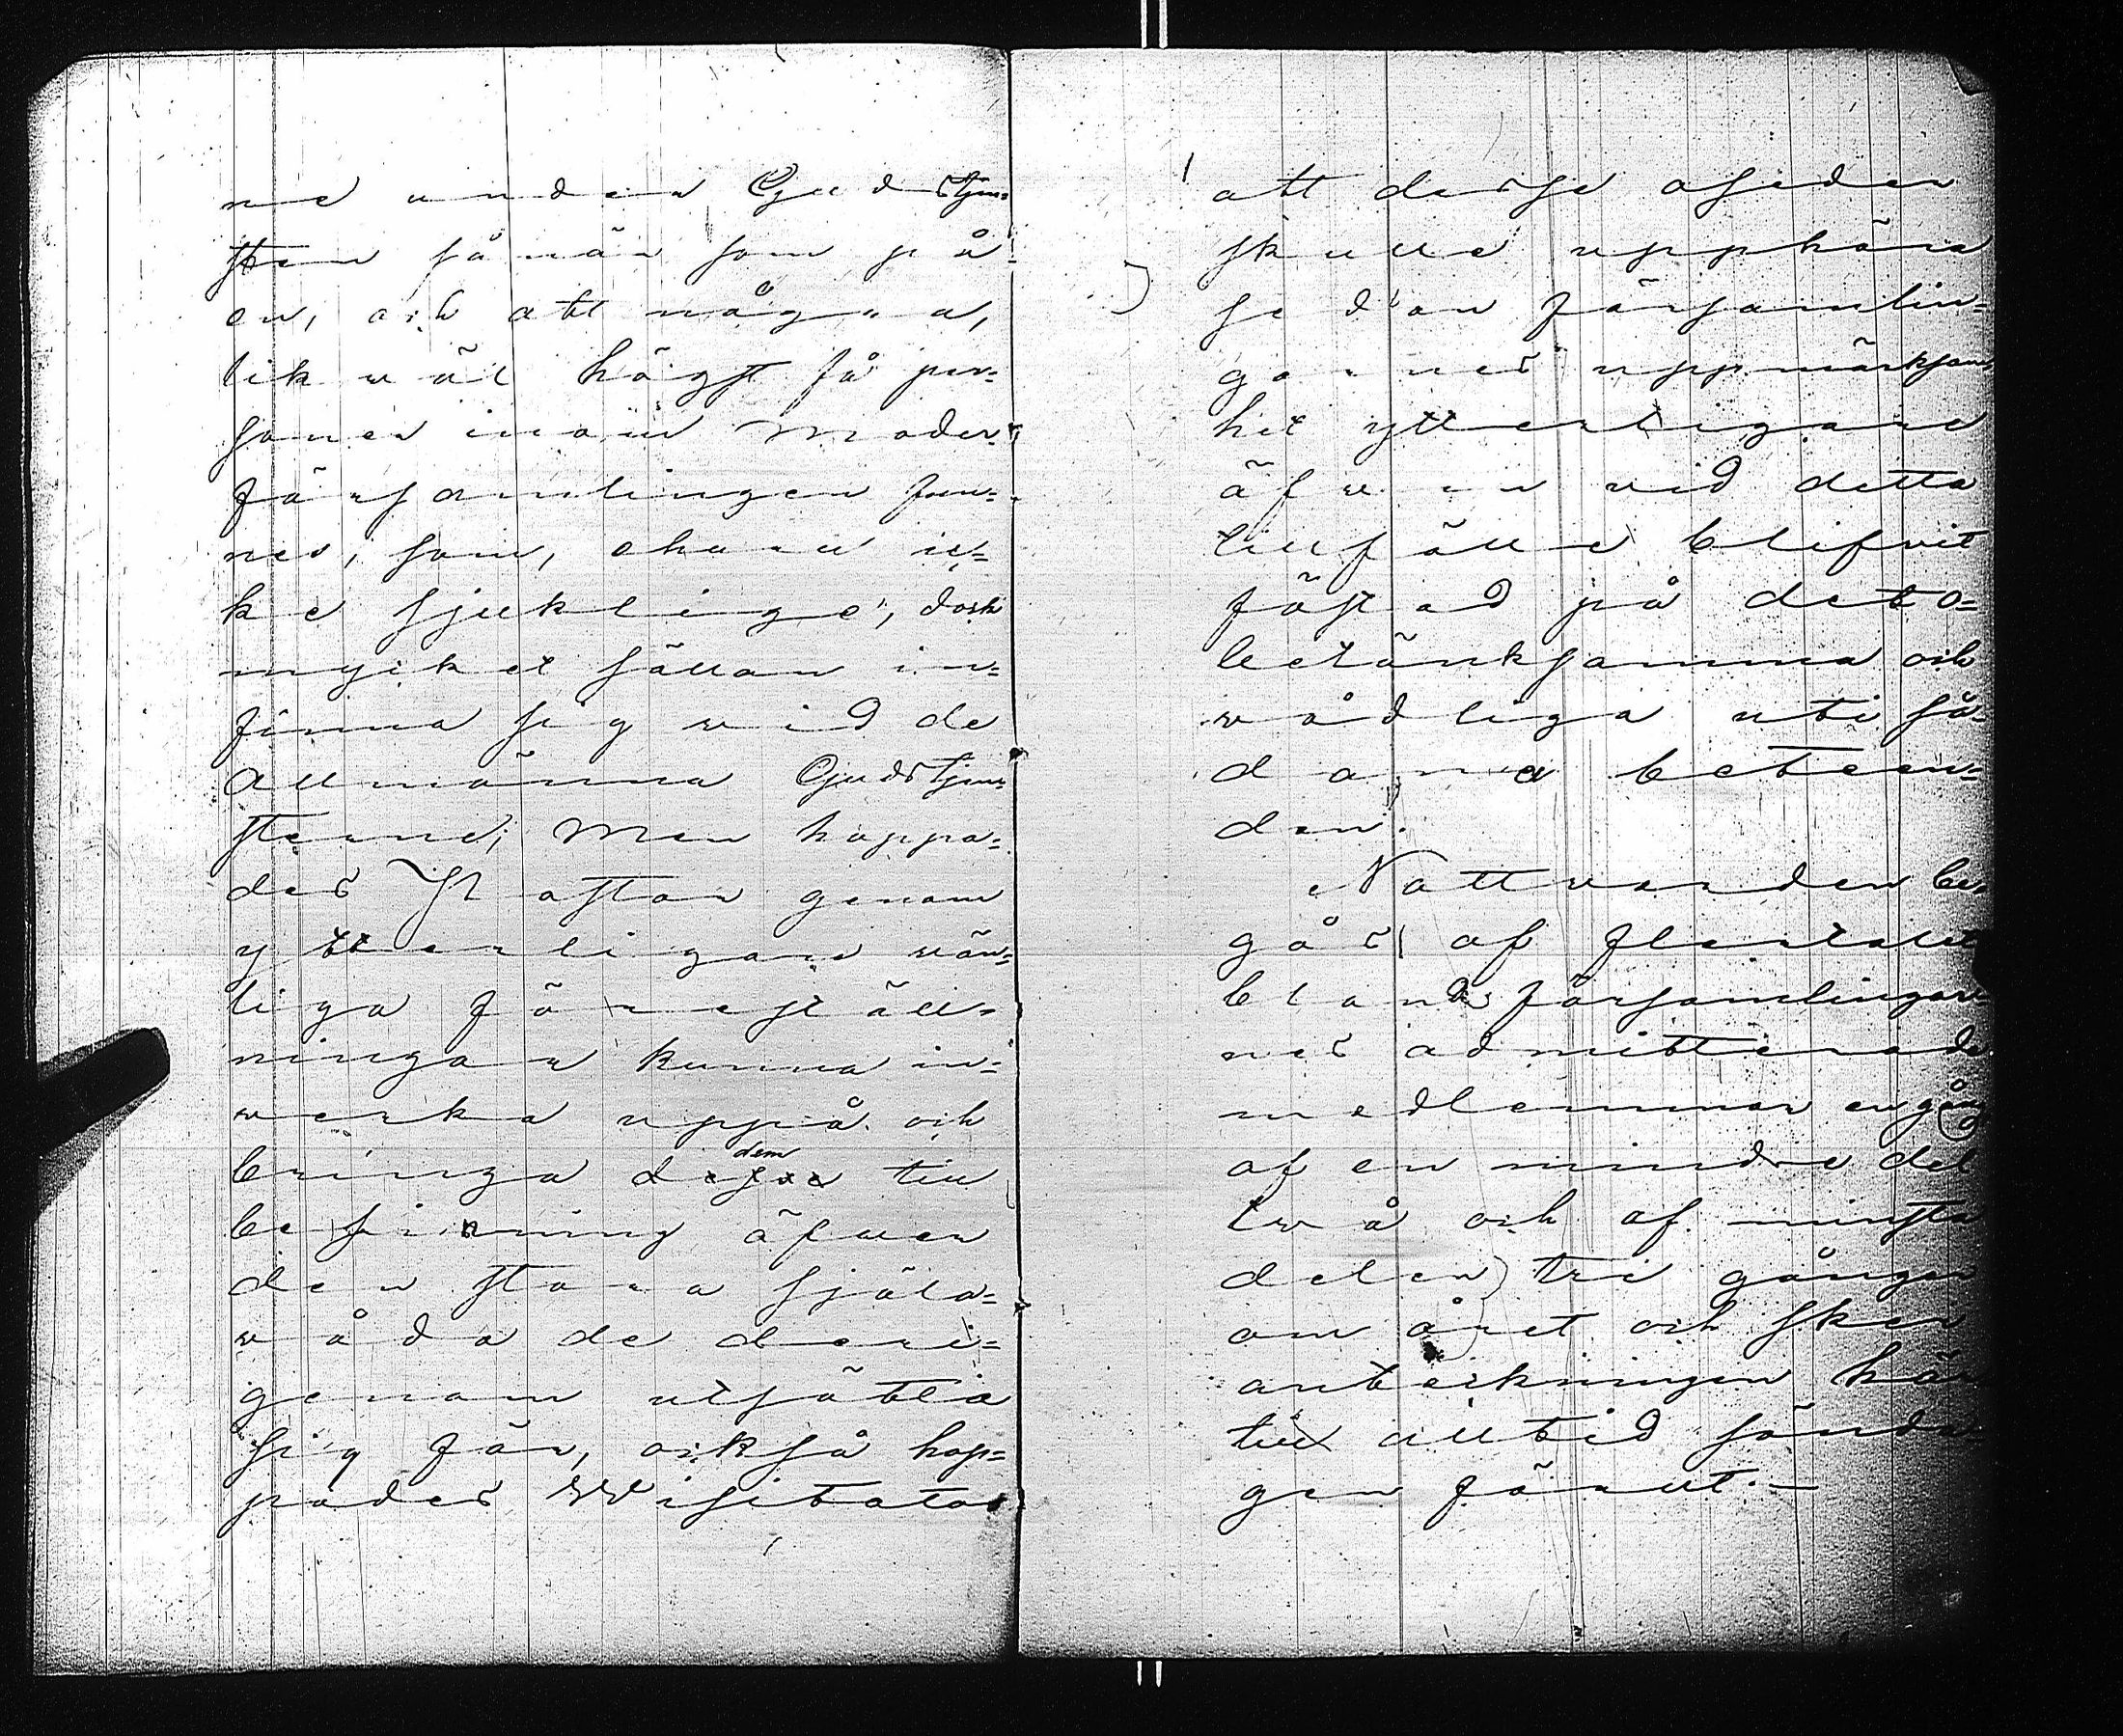 ne under Gudstjen=
sten så när som på
en, och att några,
likväl högst få per=
soner inom Moder=
församlingen fun=
nes, som, ehuru ic=
ke sjuklige, dock
mycket sällan in=
finna sig wid de
allmänna Gudstjen=
sterne; Men hoppa=
des Pastor genom
ytterligare wän=
liga föreställ=
ningar kunna in=
werka uppå och
bringa dem till
besinning äfwen
den stora själa=
wåda de deri=
genom utsätta
sig för, också hop=
pades Visitator
att dessa oseder
skulle upphöra
sedan församlin=
garnes uppmärksam=
het ytterligare
äfwen wid detta
tillfälle blifvit
fästad på det o=
betänksamma och
wådliga uti så=
dana beteen=
den.
Nattvarden be=
gås af flertalet
bland församlingar=
nes admitterade
medlemmar en gång
af en mindre del
två och af minsta
delen tre gånger
om året och sker
anteckningen här
till alltid sönda=
gen förut.—